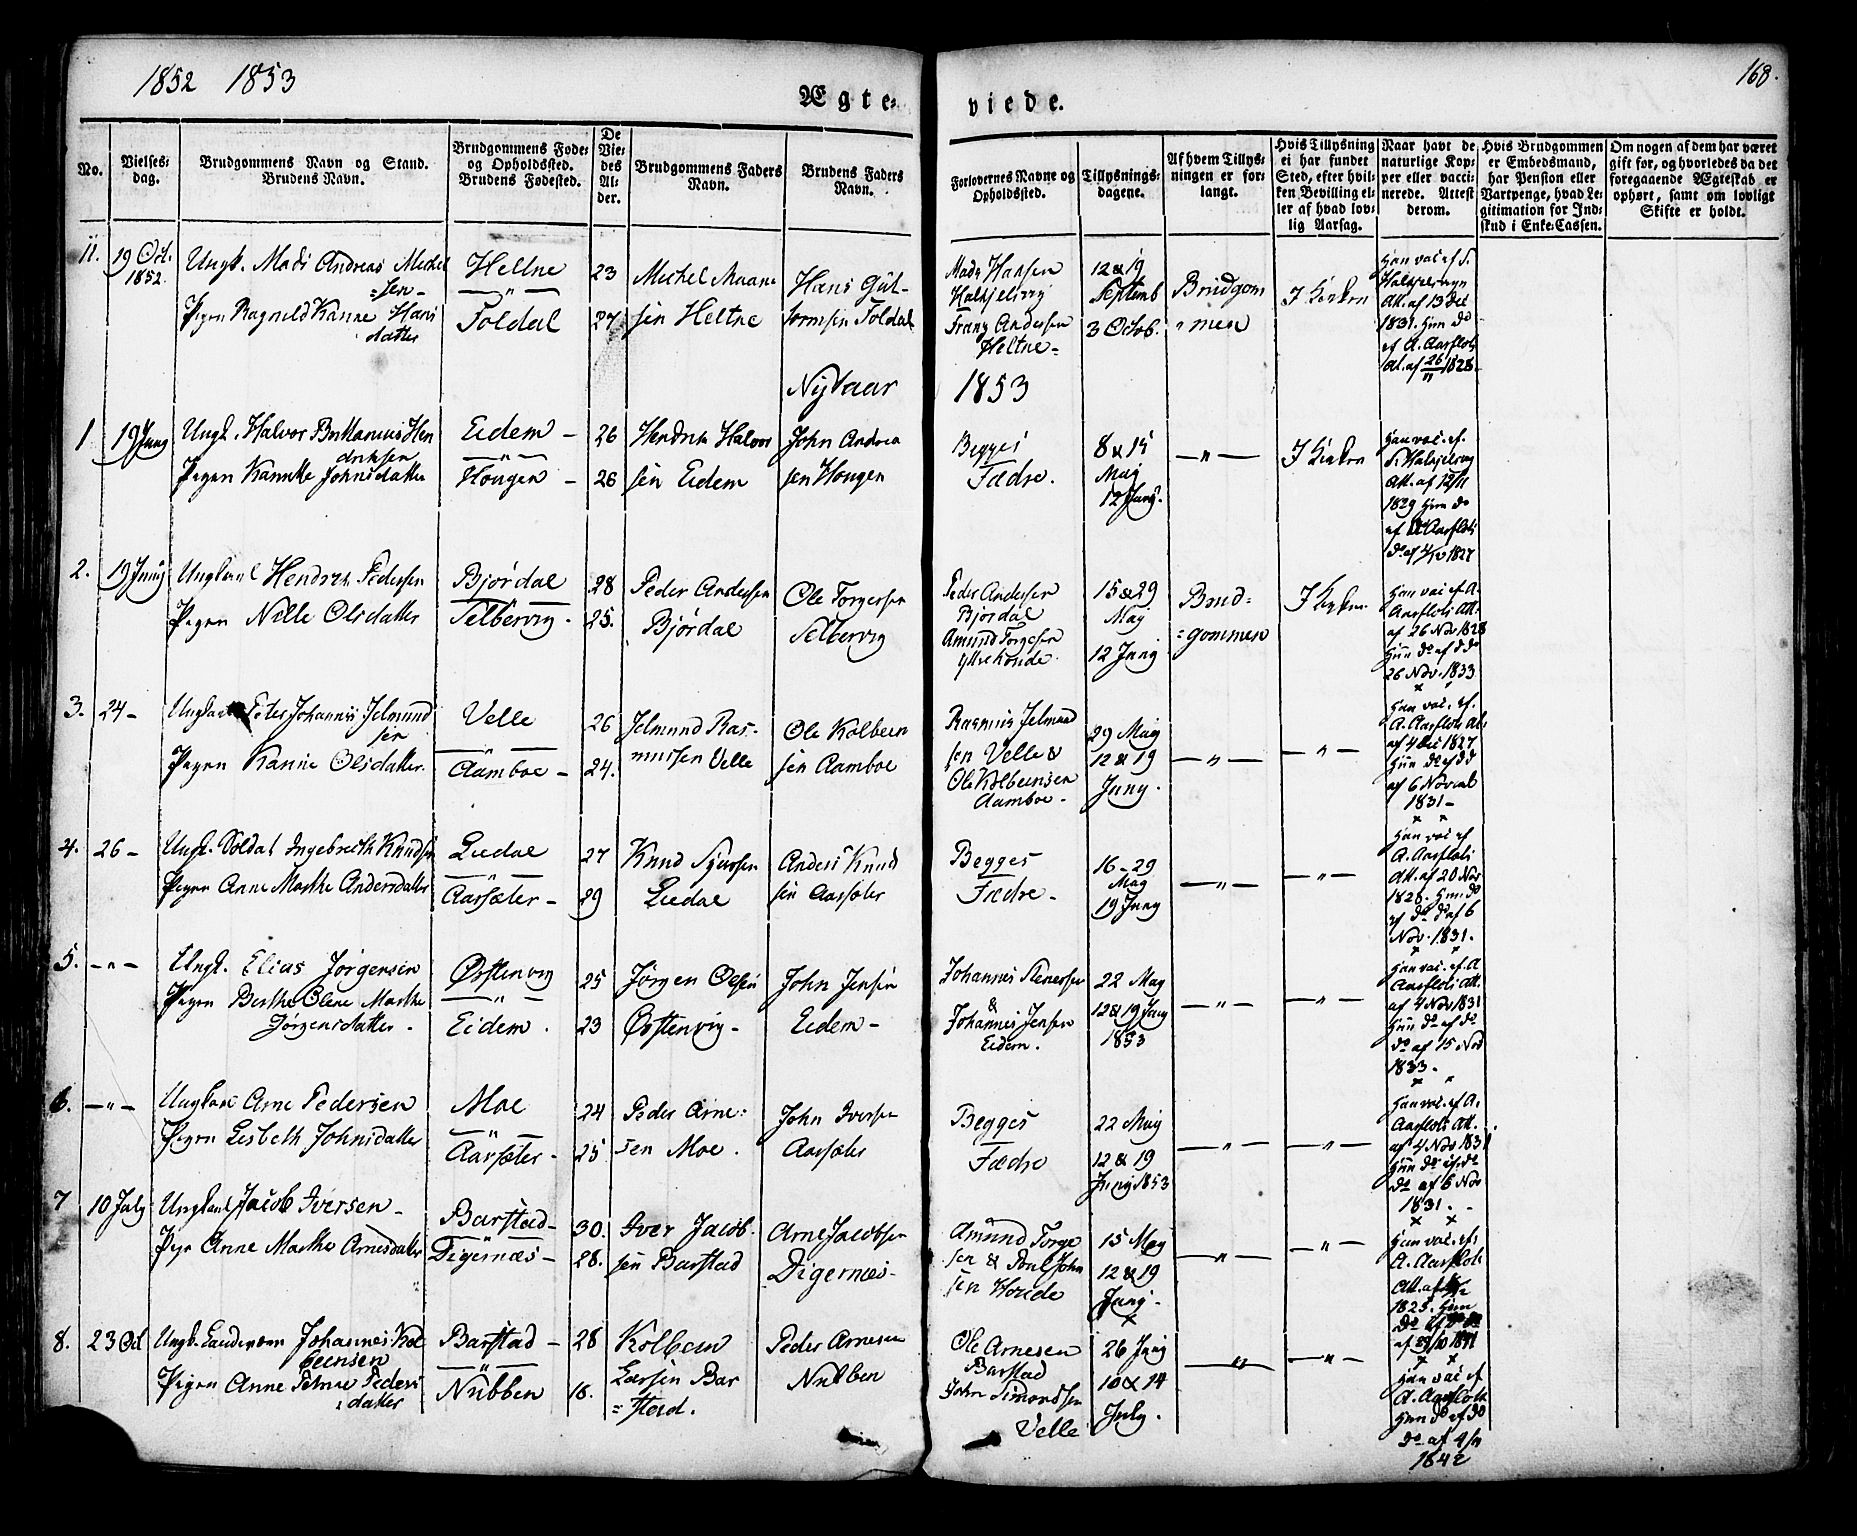 1852 1853
168.
Ægte- viede.
No.
Vielses-
dag.
Brudgommens Navn og Stand.
Brudens Navn.
Brudgommens Føde-
og Opholdssted.
Brudens Fødested.
De
Vie-
des
Al-
der.
Brudgommens Faders
Navn.
Brudens Faders
Navn.
Forlovernes Navne og
Opholdssted.
Tillysnings-
dagene.
Af hvem Tillys-
ningen er for-
langt.
Hvis Tillysning
ei har fundet
Sted, efter hvil-
ken Bevilling el-
ler af hvad lov-
lig Aarsag.
Naar havt de
naturlige Kop-
per eller vacci-
nerede. Attest
derom.
Hvis Brudgommen
er Embedsmand,
har Pension eller
Vartpenge, hvad Le-
gitimation for Ind-
skud i Enke-Cassen.
Om nogen af dem har været
gift før, og hvorledes da det
foregaaende Ægteskab er
ophørt, samt om lovligt
Skifte er holdt.
11.
19 Oct.
1852.
Ungk. Mads Andreas Michel
=sen-
Pigen Ragnild Kanne Hans
datter
Heltne
— " —
Foldal
23
27
Michel Maane
sen Heltne
Hans Gut-
tormsen Foldal
Mads Hansen
Halkjelsvig
Franz Andersen
Heltne-
12 & 19
Septemb
3 Octob.
Brudgom
" men
I Kirken
Han vac. af S.
Halkjelsvig
Att. af 13 Oct
1831. Hun do
af A. Aarflots
At. af 26/11 1828-
Nytaar
1853
1
19 Juny
Ungk. Halvor Bn Marius Hen
driksen
Pigen Kannike Johnsdatter
Eidem -
— " —
Hougen -
26
26
Hendrik Halvor
sen Eidem
John Andrea
sen Hougen
Begges
Fædre.
8 & 15
May
12 Juny.
— " —
I Kirken
Han vac. af.
S. Halkjelsvig
Att. af 12/11
1829 Hun do
af A. Aarflots
do af 4/10 1827
2.
19 Juny
Ungkarl Hendrik Pedersen
Pigen Nille Olsdatter
Bjørdal
Selbervig.
28
25.
Peder Andersen
Bjørdal
Ole Torgersen
Selbervig
Peder Andersen
Bjørdal
Amund Torgesen
Yttrehovde.
15 & 29
May
12 Juny
Brud-
= gommen
I Kirken.
Han vac. af A.
Aarflots Att.
af 26 Nov 1828
Hun do af d do
26 Nov. 1833
3.
24 -
Ungkarl Peter Johannes Jelmund
sen
Pigen Kanne Olsdatter.
Velle
— " —
Aamboe -
26
24.
Jelmund Ras-
mussen Velle
Ole Kolbeen
sen Aamboe
Rasmus Jelmund
sen Velle &
Ole Kolbeensen
Aamboe -
29 May
12 & 19
Juny.
— " —
— " —
Han vac. af.
A. Aarflots At.
af 4 Dec 1827
Hun do af d d
af 6 Nov
1831 -
4.
26 -
Ungk. Soldat Ingebreth Knudsen
Pigen Anne Marthe Andersdatter
Liedal
— " —
Aarsæter -
27
29
Knud Syvertsen
Liedal
Anders Knud
sen Aarsæter
Begges
Fædre -
16 - 29
May
19 Juny
— " —
— " —
Han vac af
A. Aarflots
Att. af 20 Nov
1828. Hun do
af do do af 6
Nov. 1831.
5.
— " —
Ungk. Elias Jørgensen
Pigen Berthe Oline Marthe
Jørgensdatter -
Østenvig
— " —
Eidem.
25
23
Jørgen Olsen
Østenvig -
John Jensen
Eidem -
Johannes Stenersen
&
Johannes Jensen
Eidem.
22 May
12 & 19 Juny
1853
— " —
— " —
Han vac. af A
Aarflots Att.
af 4 Nov 1831
Hun do af do
do af 15 Nov
1833.
6.
— " —
Ungkarl Arne Pedersen
Pigen Lisbeth Johnsdatter
Moe
— " —
Aarsæter -
24
25
Peder Arne-
sen Moe.
John Iversen
Aarsæter
Begges
Fædre
22 May
12 & 19
Juny 1853
— " —
— " —
Han vac. af A.
Aarflots Att.
af 4 Nov 1831.
Hun do af do
do af 6 Nov
1831.
7
10 July
Ungkarl Jacob Iversen -
Pige Anne Marthe Arnesdatter
Barstad -
— " —
Digernæs -
30.
28.
Iver Jacob-
sen Barstad
Arne Jacobsen
Digernæs -
Amund Torge
sen & Poul John
sen Hovde
15 May
12 & 19
Juny.
— " —
— " —
Han vac. af.
A. Aarflots
Att. af
1825. Hun
8.
23 Oct
Ungk. Landværn Johannes Kol
beensen
Pigen Anne Petrine Peders
datter
Barstad -
— " —
Nubben
28
18.
Kolbeen
Larsen Bar
= stad.
Peder Arnesen
Nubben
Ole Arnesen
Barstad
John Simondsen
Velle
26 Juny
10 & 14
July.
— " —
— " —
Han vac af
A. Aarflots
Hun do af do
do af 4/11
1842